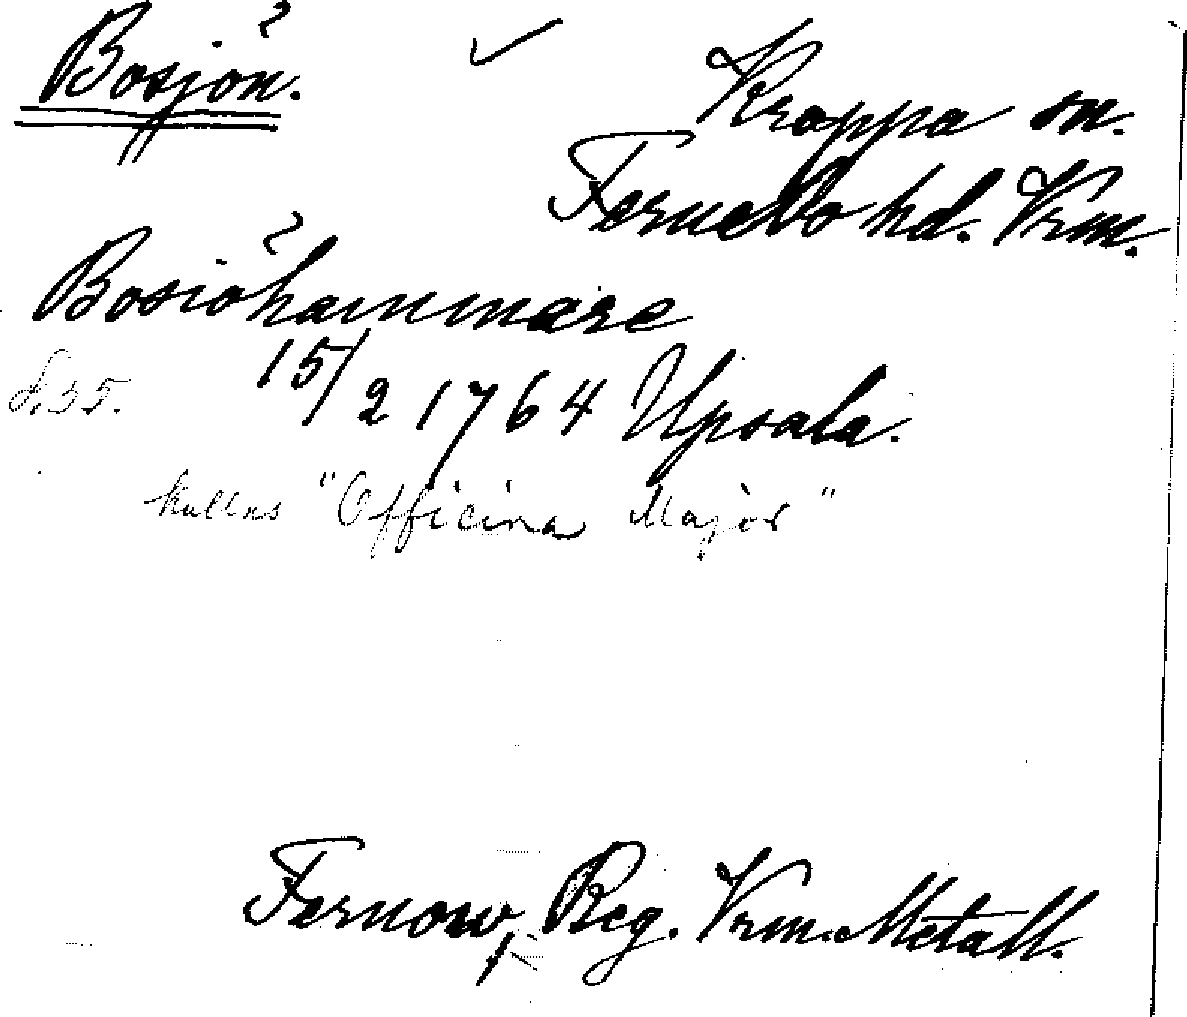 Bosjön.
Kroppa sn.
Fernebo hd. Vrm.
Bosiöhammare
s. 35. 15/2 1764 Upsala.
kallas "Officina Major"
Fernow, Reg. Vrm. Metall.